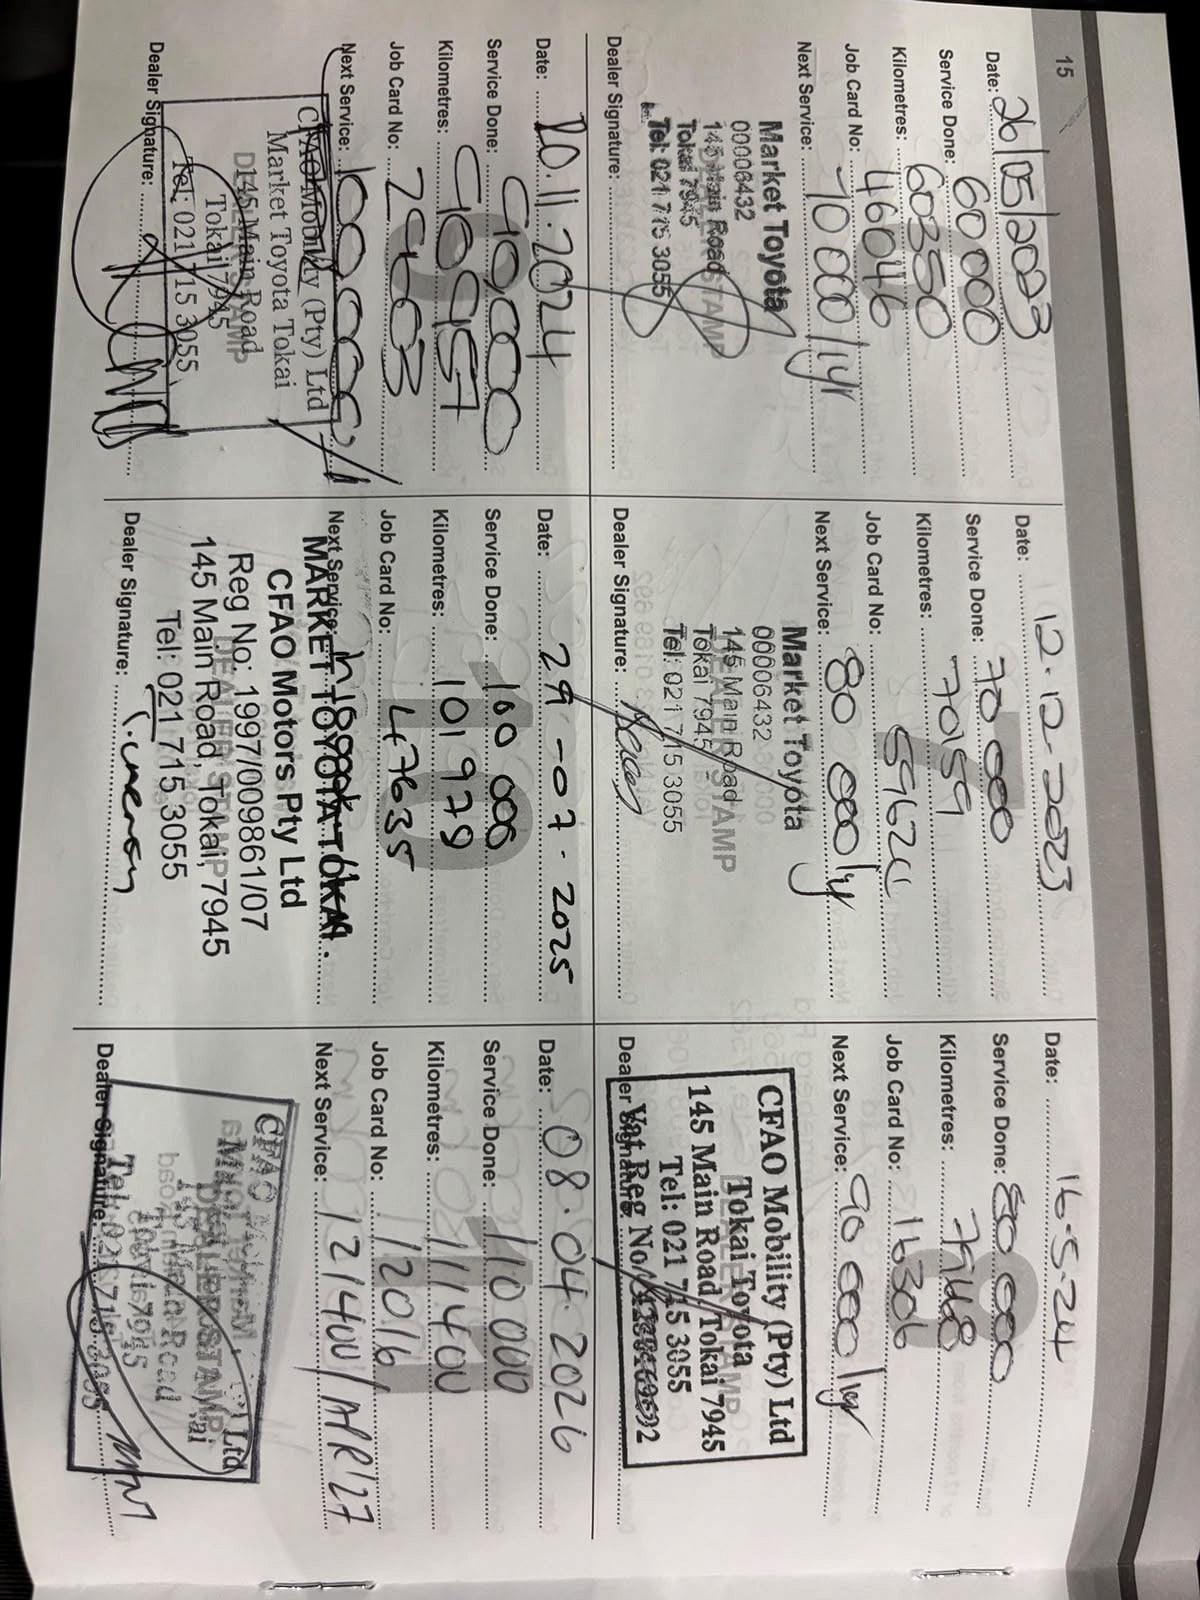 15
Date: 26/05/2023
Service Done: 60 000
Kilometres: 60350
Job Card No: 46046
Next Service: 70 000/1yr
Market Toyota
00006432
145 Main Road
Tokai 7945
Tel: 021 715 3055
DEALER STAMP
Dealer Signature:
7
Date: 12.12.2023
Service Done: 70 000
Kilometres: 70159
Job Card No:
Next Service: 80 000/1y
Market Toyota
00006432
145 Main Road
Tokai 7945
Tel: 021 715 3055
DEALER STAMP
Dealer Signature:
8
Date: 16.5.24
Service Done: 80.000
Kilometres: 79468
Job Card No: 116306
Next Service: 90 000/1yr
CFAO Mobility (Pty) Ltd
Tokai Toyota
145 Main Road Tokai 7945
Tel: 021 715 3055
Vat Reg No
DEALER STAMP
Dealer Signature:
9
Date: 20.11.2024
Service Done: 90000
Kilometres: 90957
Job Card No: 29603
Next Service: 100 000
CFAO Mobility (Pty) Ltd
Market Toyota Tokai
145 Main Road
Tokai 7945
Tel: 021 715 3055
DEALER STAMP
Dealer Signature:
10
Date: 29-07.2025
Service Done: 100 000
Kilometres: 101 979
Job Card No: 47635
Next Service:
MARKET TOYOTA TOKAI.
CFAO Motors Pty Ltd
Reg No: 1997/009861/07
145 Main Road, Tokai, 7945
Tel: 021 715 3055
DEALER STAMP
Dealer Signature:
11
Date: 08.04.2026
Service Done: 110 000
Kilometres: 111 400
Job Card No: 12016
Next Service: 121400/APR'27
CFAO
Ltd
DEALER STAMP
Dealer Signature: